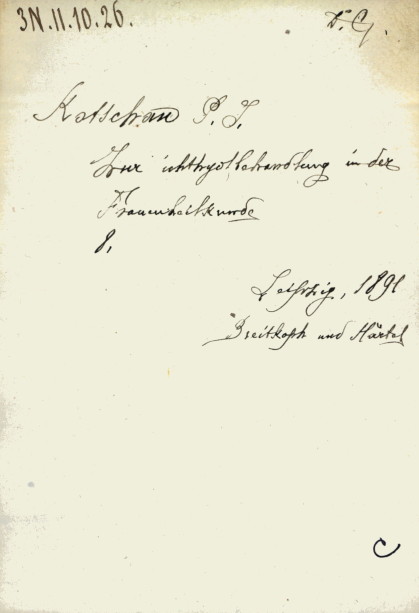 3N.11.10.26.
D. C.
Kotschau P. J.
Zur ichthyolbehandlung in der
Frauenheilkunde
8.
Leipzig, 1891
Breitkoph und Härtel
C